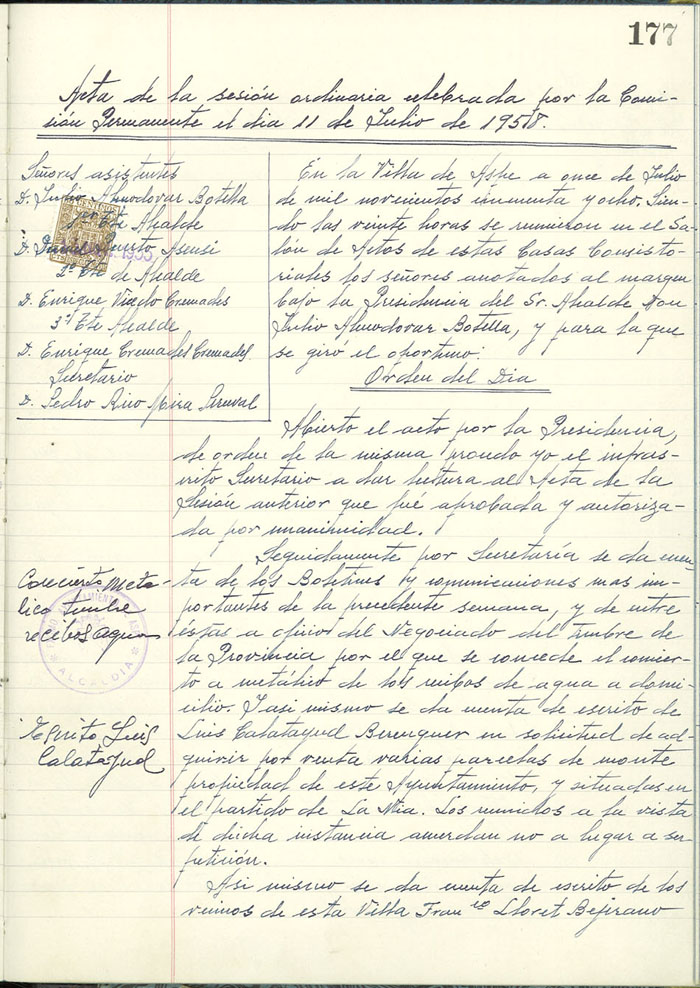 177
Acta de la sesión ordinaria celebrada por la Comi-
sión Permanente el dia 11 de Julio de 1958.
Señores asistentes
D. Julio Almodovar Botella
1er Tte Alcalde
D. Daniel Cerito Asensi
2º Tte de Alcalde
D. Enrique Viedo Cremades
3er Tte Alcalde
D. Enrique Cremades Cremades
Secretario
D. Pedro Rico Mira Perceval
En la Villa de Aspe a once de Julio
de mil novecientos cincuenta y ocho. Sien-
do las veinte horas se reunieron en el Sa-
lón de Actos de estas Casas Consisto-
riales los señores anotados al margen
bajo la Presidencia del Sr. Alcalde Don
Julio Almodovar Botella, y para la que
se giró el oportuno:
Orden del Dia
Abierto el acto por la Presidencia,
de orden de la misma procedo yo el infras-
crito Secretario a dar lectura al Acta de la
Sesión anterior que fué aprobada y autoriza-
da por unanimidad.
Concierto metá-
lico timbre
recibos agua
ALCALDIA
Seguidamente por Secretaría se da cuen-
ta de los Boletines y comunicaciones mas im-
portantes de la precedente semana, y de entre
éstas a oficio del Negociado del Timbre de
la Provincia por el que se concede el concier-
to a metálico de los recibos de agua a domi-
cilio. Y asi mismo se da cuenta de escrito de
Escrito Luis
Calatayud
Luis Calatayud Berenguer en solicitud de ad-
quirir por venta varias parcelas de monte
propiedad de este Ayuntamiento, y situadas en
el partido de La Mia. Los reunidos a la vista
de dicha instancia acuerdan no a lugar a su
petición.
Asi mismo se da cuenta de escrito de los
vecinos de esta Villa Franco Lloret Bejerano